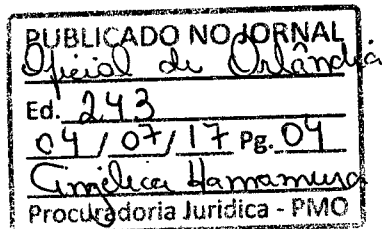 PUBLICADO NO JORNAL
Oficial de Orlândia
Ed. 243
04 / 07 / 17 Pg. 04
Angélica Hamamura
Procuradoria Jurídica - PMO